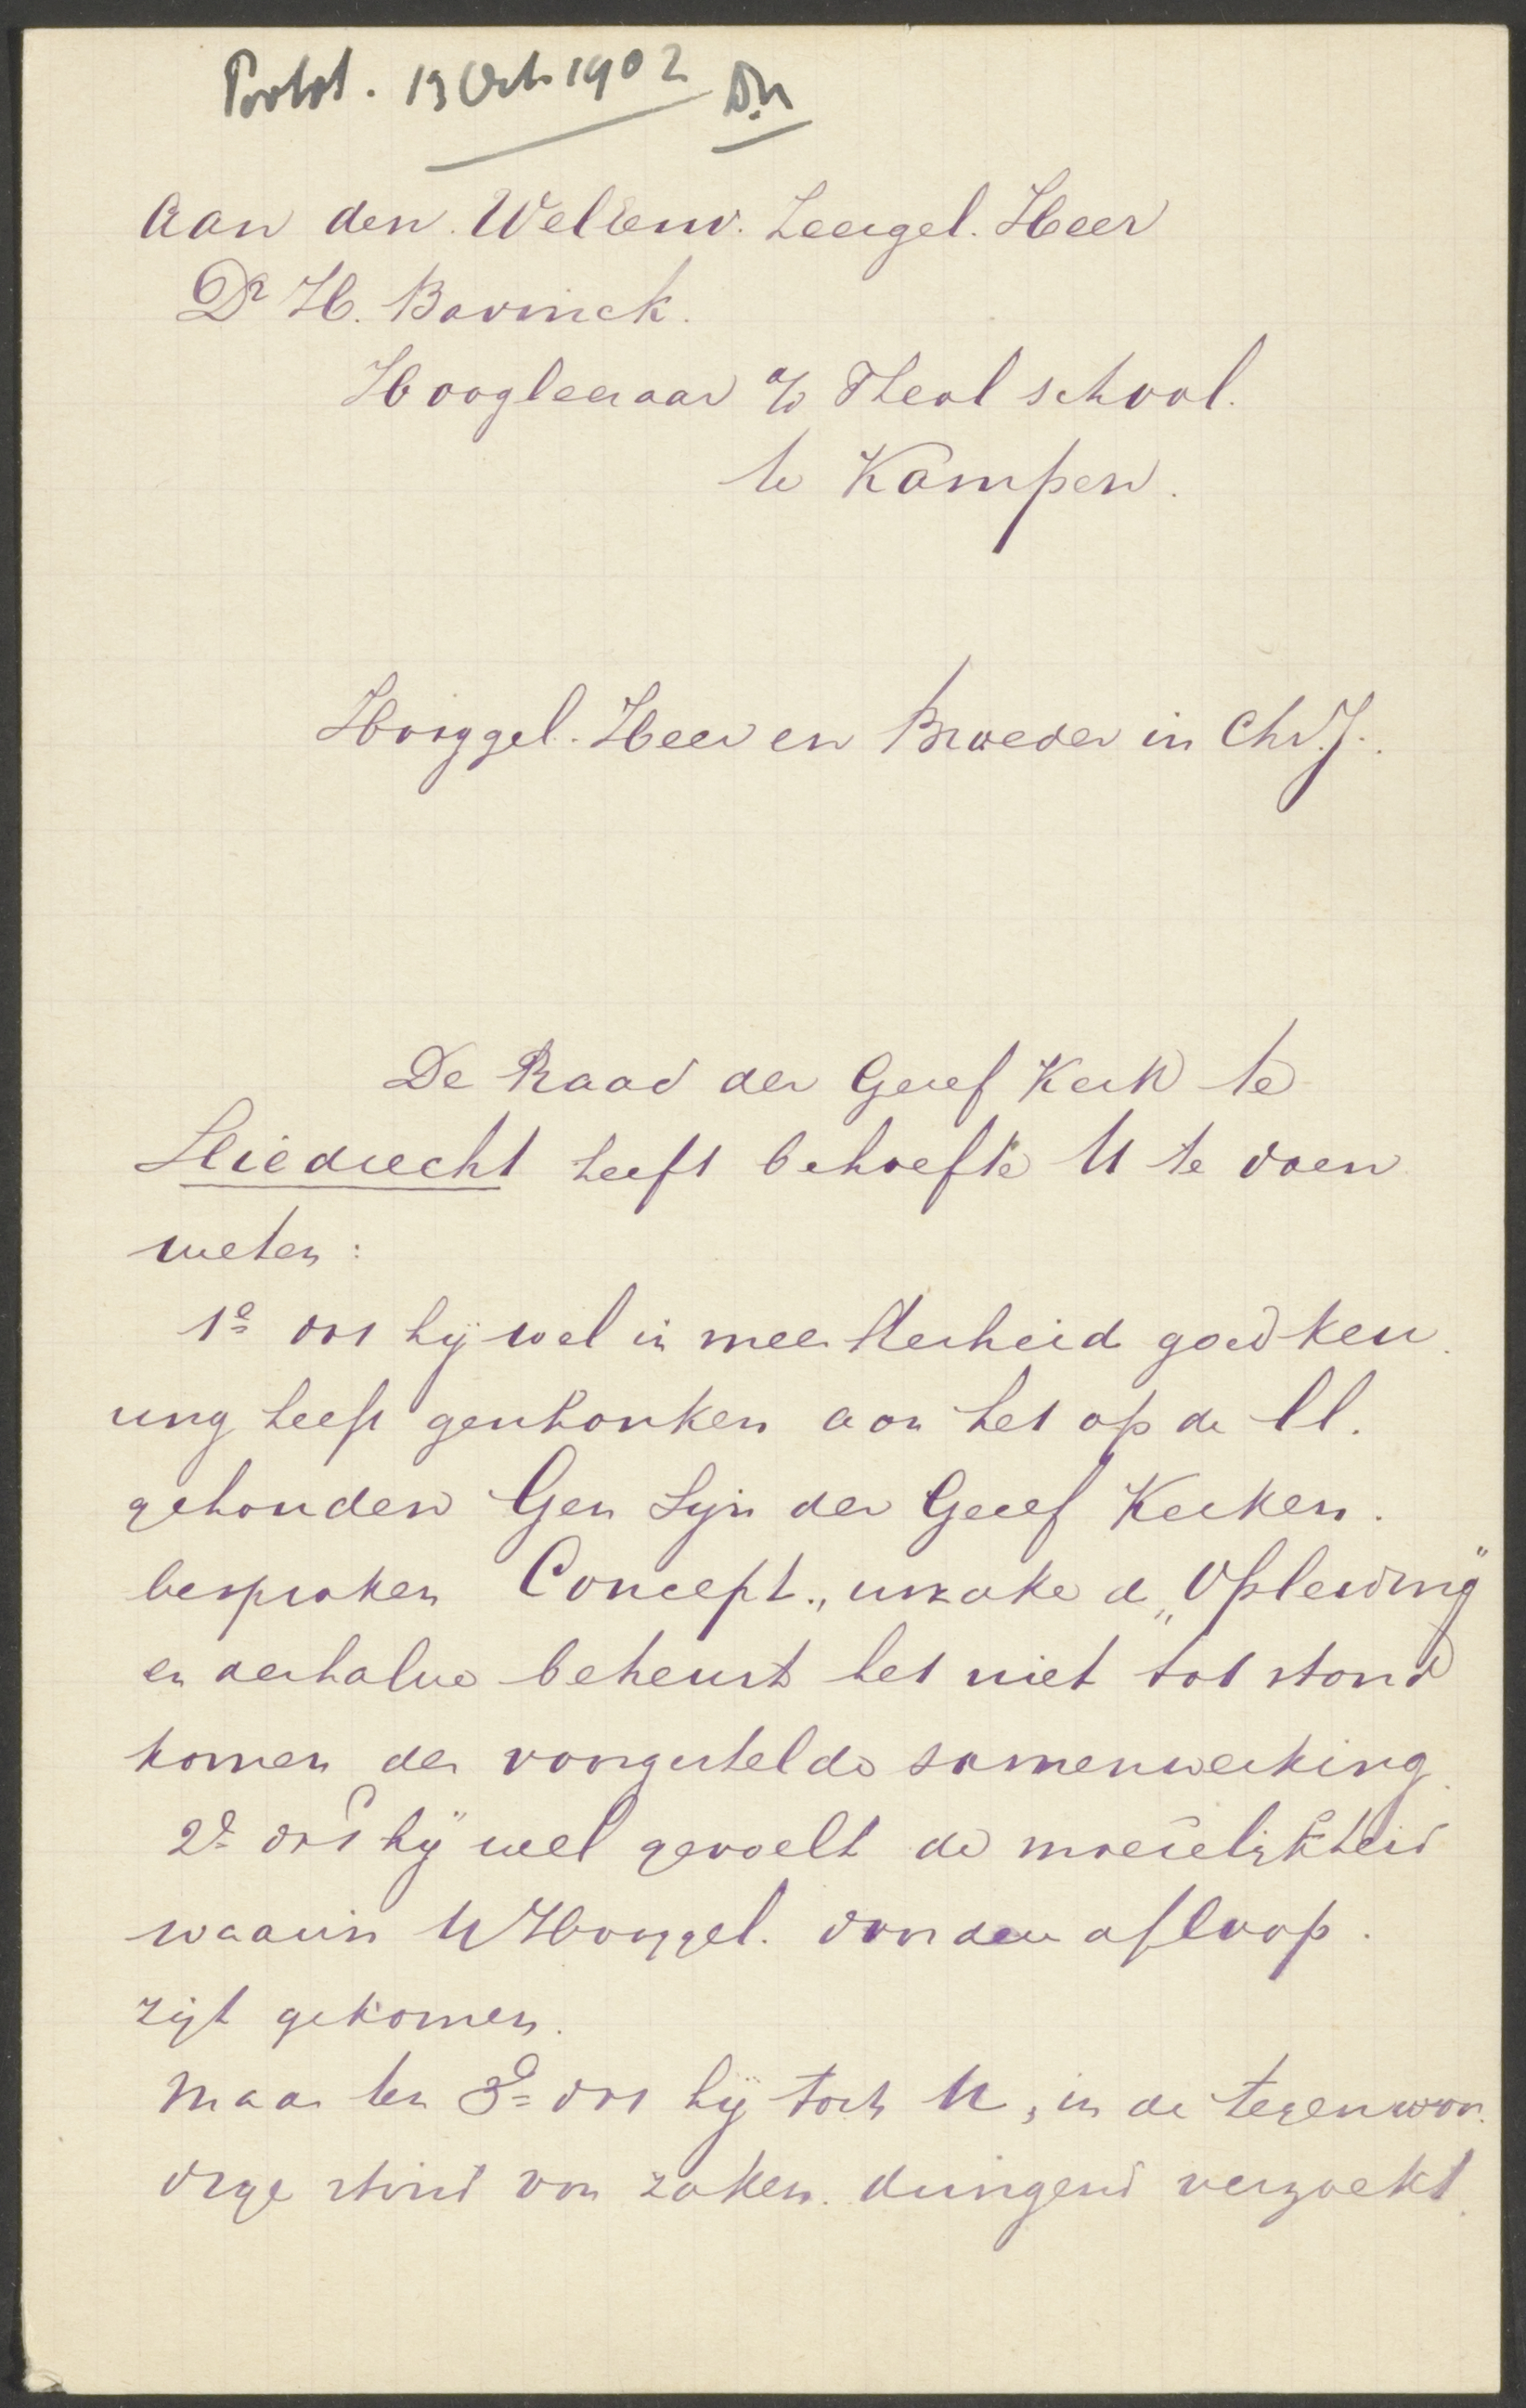 Postst. 13 Oct 1902 D.H.
Aan den WelEerw. Zeergel. Heer
Dr H. Bavinck.
Hoogleeraar a/d Theol school.
te Kampen.
Hooggel. Heer en Broeder in Chr. J.
De Raad der Geref Kerk te
Sliedrecht heeft behoefte U te doen
weten:
1e dat hij wel in meerderheid goedkeu
ring heeft geschonken aan het op de ll.
gehouden Gen Syn der Geref Kerken.
besproken Concept., inzake de „Opleiding"
en derhalve betreurt het niet tot stand
komen der voorgestelde samenwerking.
2e dat hij wel gevoelt de moeielijkheid
waarin UHooggel. door den afloop.
zijt gekomen.
Maar ten 3e dat hij toch U, in de tegenwoor.
dige stand van zaken. dringend verzoekt